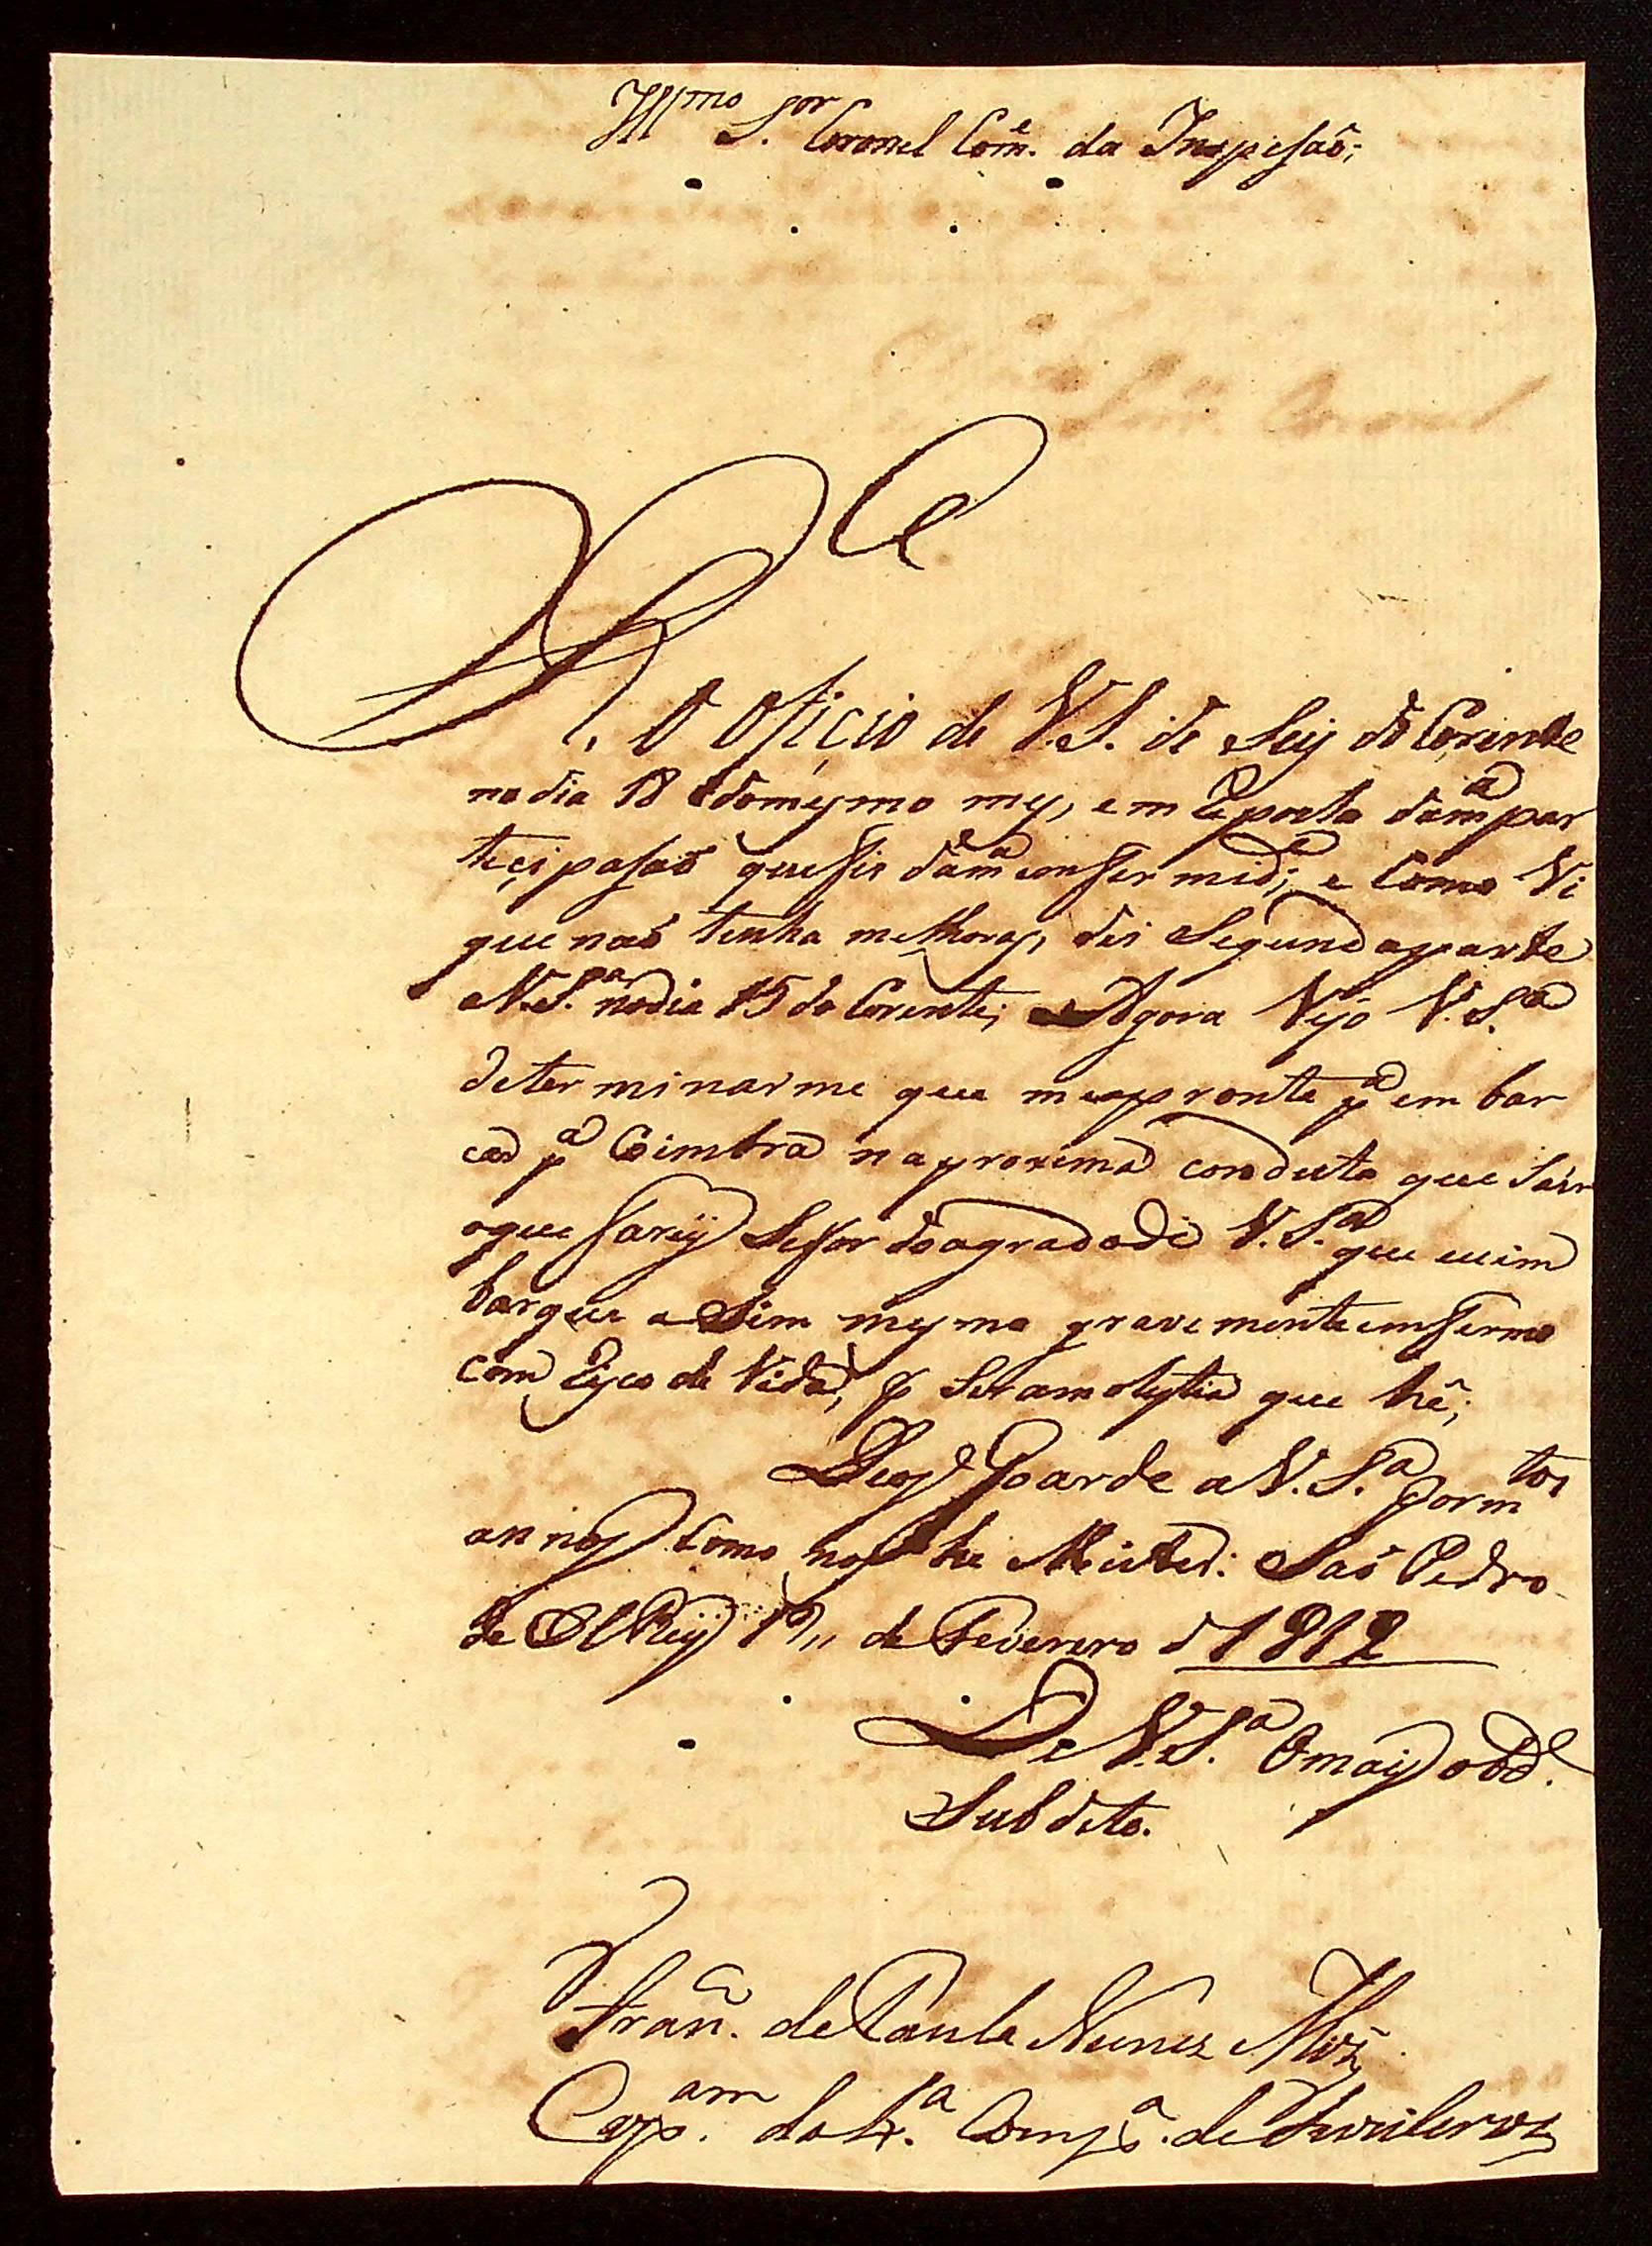 Illmo Sor Coronel Come. da Inspesaõ;
Re. O Oficio de V.S. de Seis do Corente
no dia 18 do mesmo mes, em Resposta da ma par
tecipasaõ que fis da ma enfermide; e Como Vi
que naõ tenha melhoras, dei Segunda parte
a V.Sa. no dia 15 do Corente; e Agora Vejo V.Sa
determinarme que me apronte pa em bar
car pa Coimbra na proxima conduta que Sair
oque farei Se for do agrado de V.Sa que eu im
barque a Sim mesmo gravemente emfermo
com Risco de Vida, p Ser a molestia que hê;
Deos Goarde a V.Sa por mtos
annos Como nos he Mister: Saõ Pedro
de El Rey 19 de Fevereiro d 1812
De V.Sa O mais obde.
Subdito.
Frañ.co de Paula Nunez
Capam. da 4.a Compa. de Fuzileiros